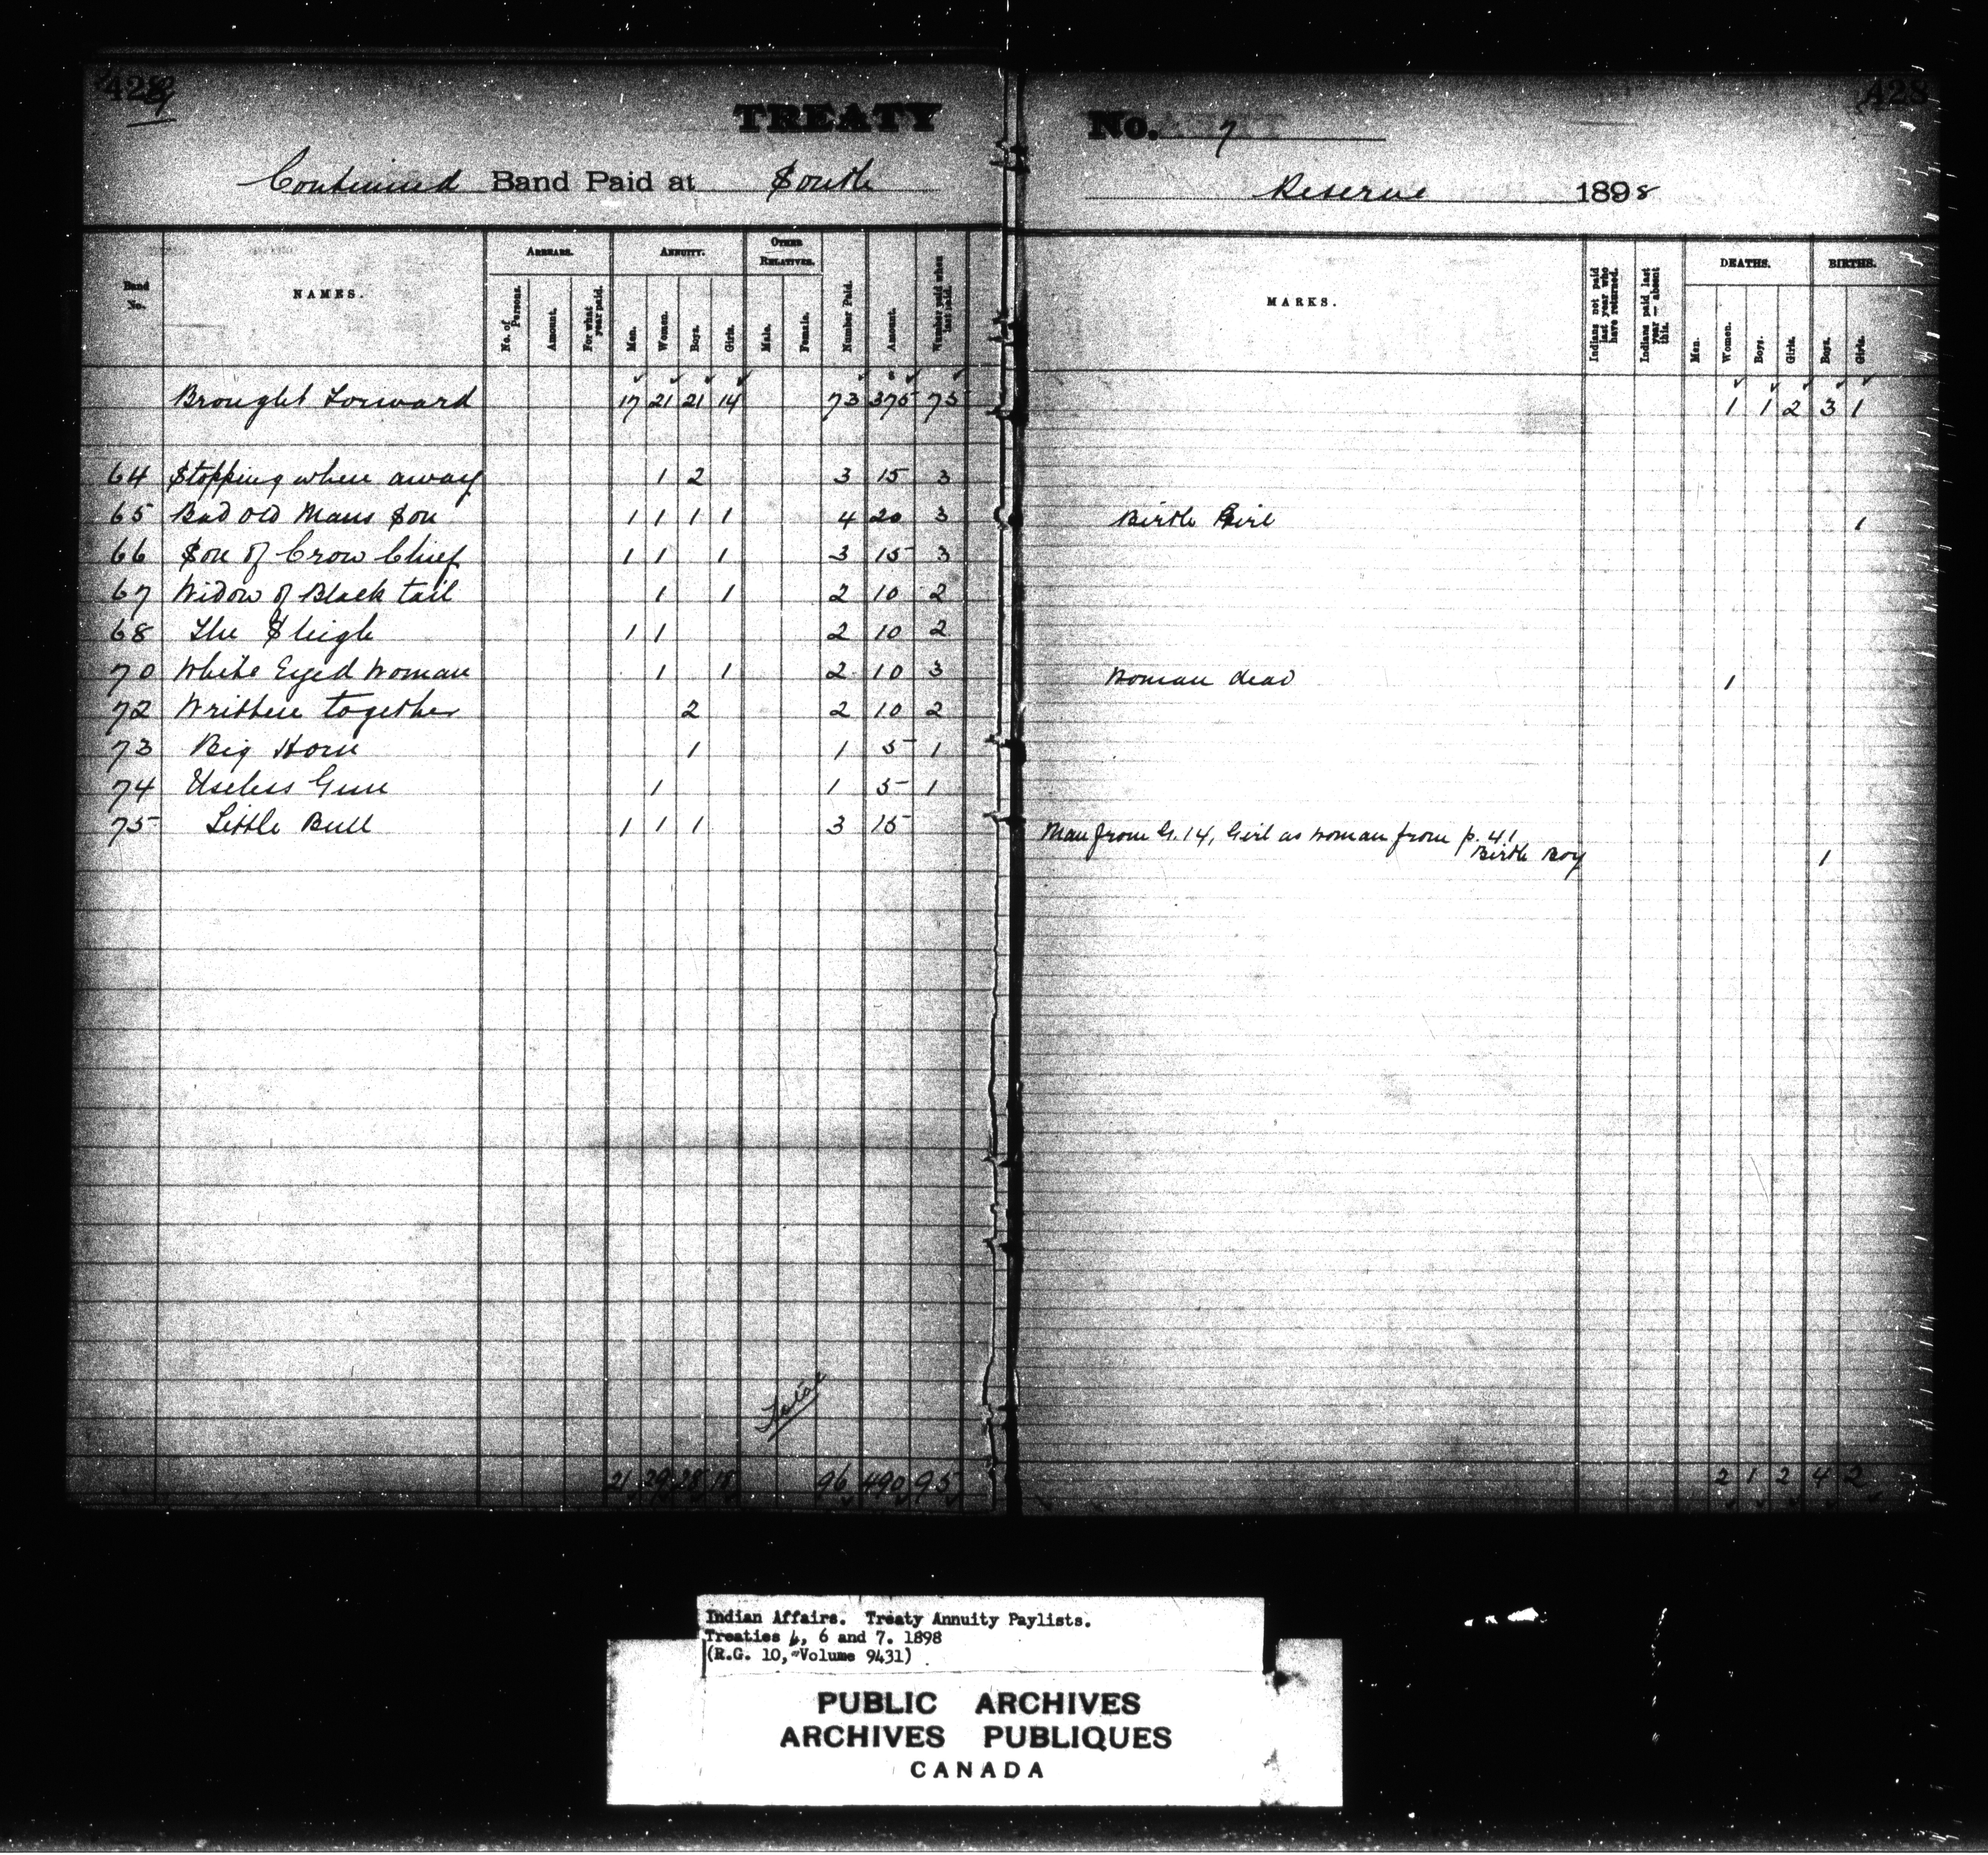 428
TREATY No. 7
Continued Band Paid at South Reserve 1898
Band No. NAMES. ARREARS. No. of Persons. Amount. For what year paid. ANNUITY. Men. Women. Boys. Girls. OTHER RELATIVES. Male. Female. Number Paid. Amount. Number paid when last paid. MARKS. Indians not paid last year who have returned. Indians paid last year — absent this. DEATHS. Men. Women. Boys. Girls. BIRTHS. Boys. Girls.
Brought Forward 17 21 21 14 73 375 75 1 1 2 3 1
64 Stopping where away 1 2 3 15 3
65 Bad old Mans Son 1 1 1 1 4 20 3 Birth Girl 1
66 Son of Crow Chief 1 1 1 3 15 3
67 Widow of Black tail 1 1 2 10 2
68 The Sleigh 1 1 2 10 2
70 White Eyed Woman 1 1 2 10 3 Woman dead 1
72 Writhen together 2 2 10 2
73 Big Horn 1 1 5 1
74 Useless Gun 1 1 5 1
75 Little Bull 1 1 1 3 15 Man from G. 14, Girl as woman from p. 41
Birth Boy 1
Total
21 29 28 18 96 490 95 2 1 2 4 2
Indian Affairs. Treaty Annuity Paylists.
Treaties 4, 6 and 7. 1898
(R.G. 10, Volume 9431)
PUBLIC ARCHIVES
ARCHIVES PUBLIQUES
CANADA